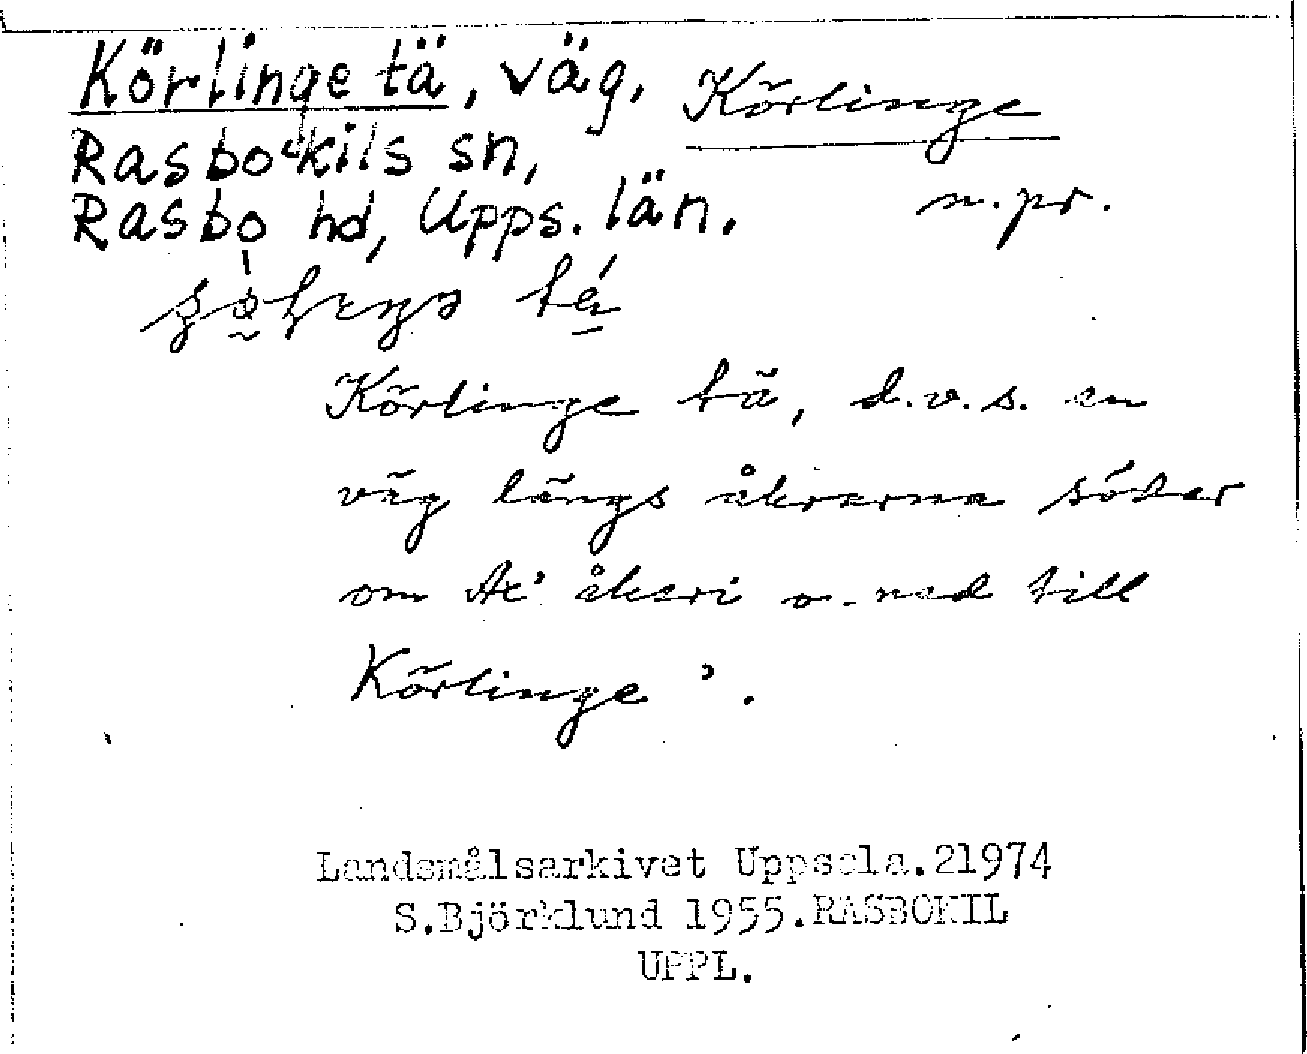 Körlinge tä, väg,
Rasbokils sn,
Rasbo hd, Upps. län.
Körlinge
n. pr.
Körlinge tä, d.v.s. en
väg längs åkrarna söder
om åkeri o. ned till
Körlinge'.
Landsmålsarkivet Uppsala.21974
S.Björklund 1955.RASBOKIL
UPPL.